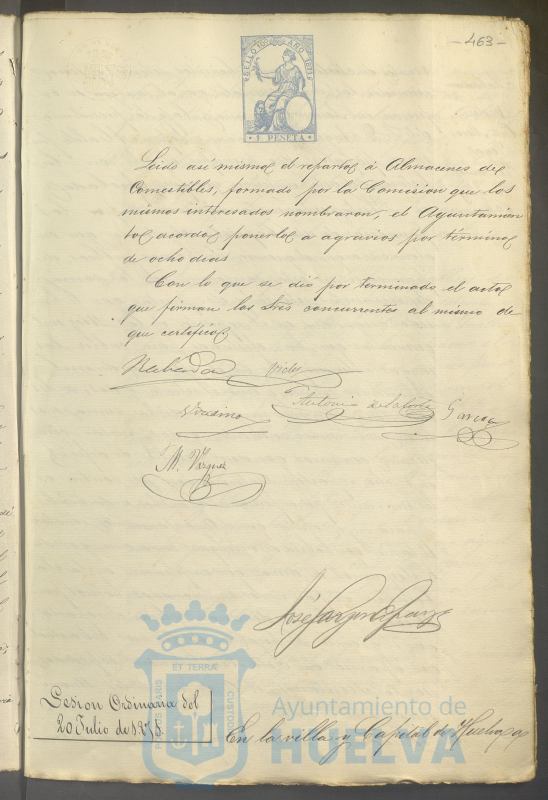 -463-
SELLO 10º AÑO 1875
1 PESETA
Leido asi mismo el reparto á Almacenes de
Comestibles, formado por la Comision que los
mismos interesados nombraron, el Ayuntamien
to acordó ponerlo a agravios por termino
de ocho dias
Con lo que se dió por terminado el acto
que firman los Sres concurrentes al mismo de
que certifico
Antonio de la Corte
Garcia
M. Vazquez
Sesion Ordinaria del
20 Julio de 1875.
En la villa y Capital de Huelva a
PORTUS MARIS
ET TERRÆ
CUSTODIA
Ayuntamiento de
HUELVA